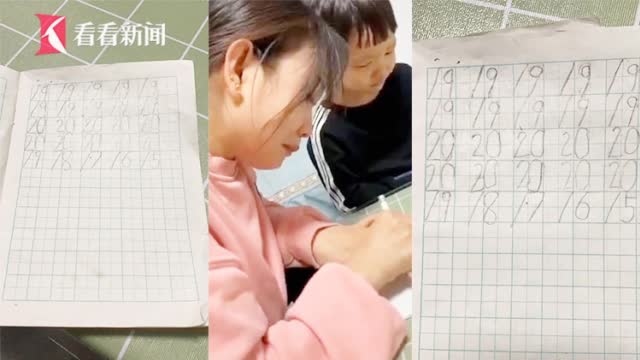 看看新闻
19 19 19 19 19
19 19 19 19 19
20 20 20 20 20
20 20 20 20 20
19 18 17 16 15
19 19 19 19 19
19 19 19 19 19
20 20 20 20 20
20 20 20 20 20
19 18 17 16 15